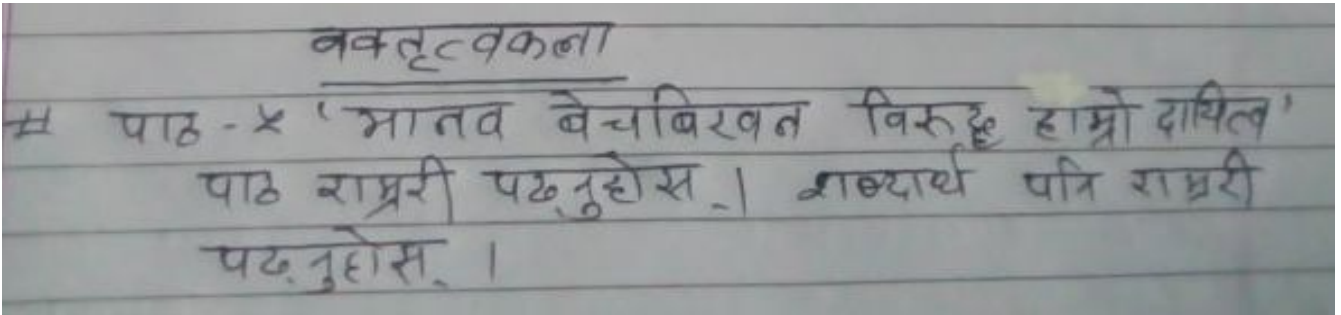 वक्तृत्वकला
# पाठ - ५ 'मानव बेचबिखन विरुद्ध हाम्रो दायित्व'
पाठ राम्ररी पढ्नुहोस् । शब्दार्थ पनि राम्ररी
पढ्नुहोस् ।